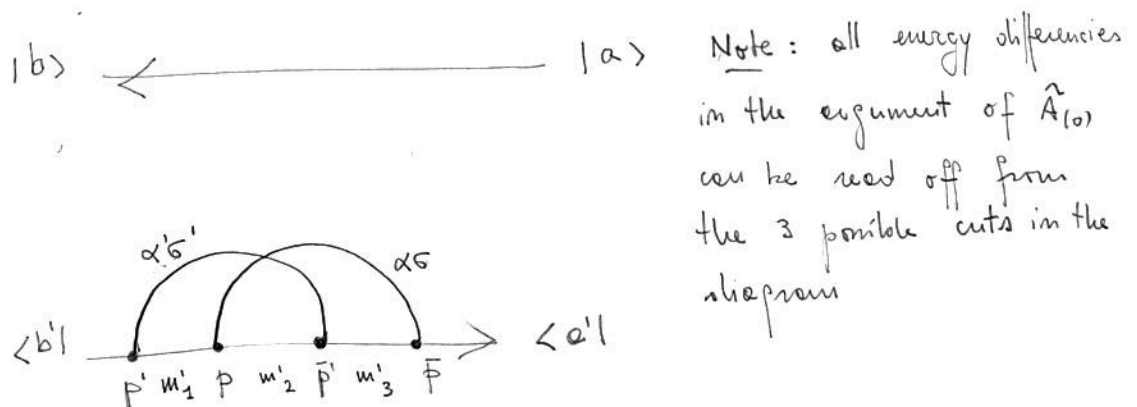 |b> |a>
Note : all energy differencies
in the argument of Â(0)
can be read off from
the 3 possible cuts in the
diagram
α'σ' ασ
<b'| <a'|
p' m'₁ p m'₂ p̄' m'₃ p̄